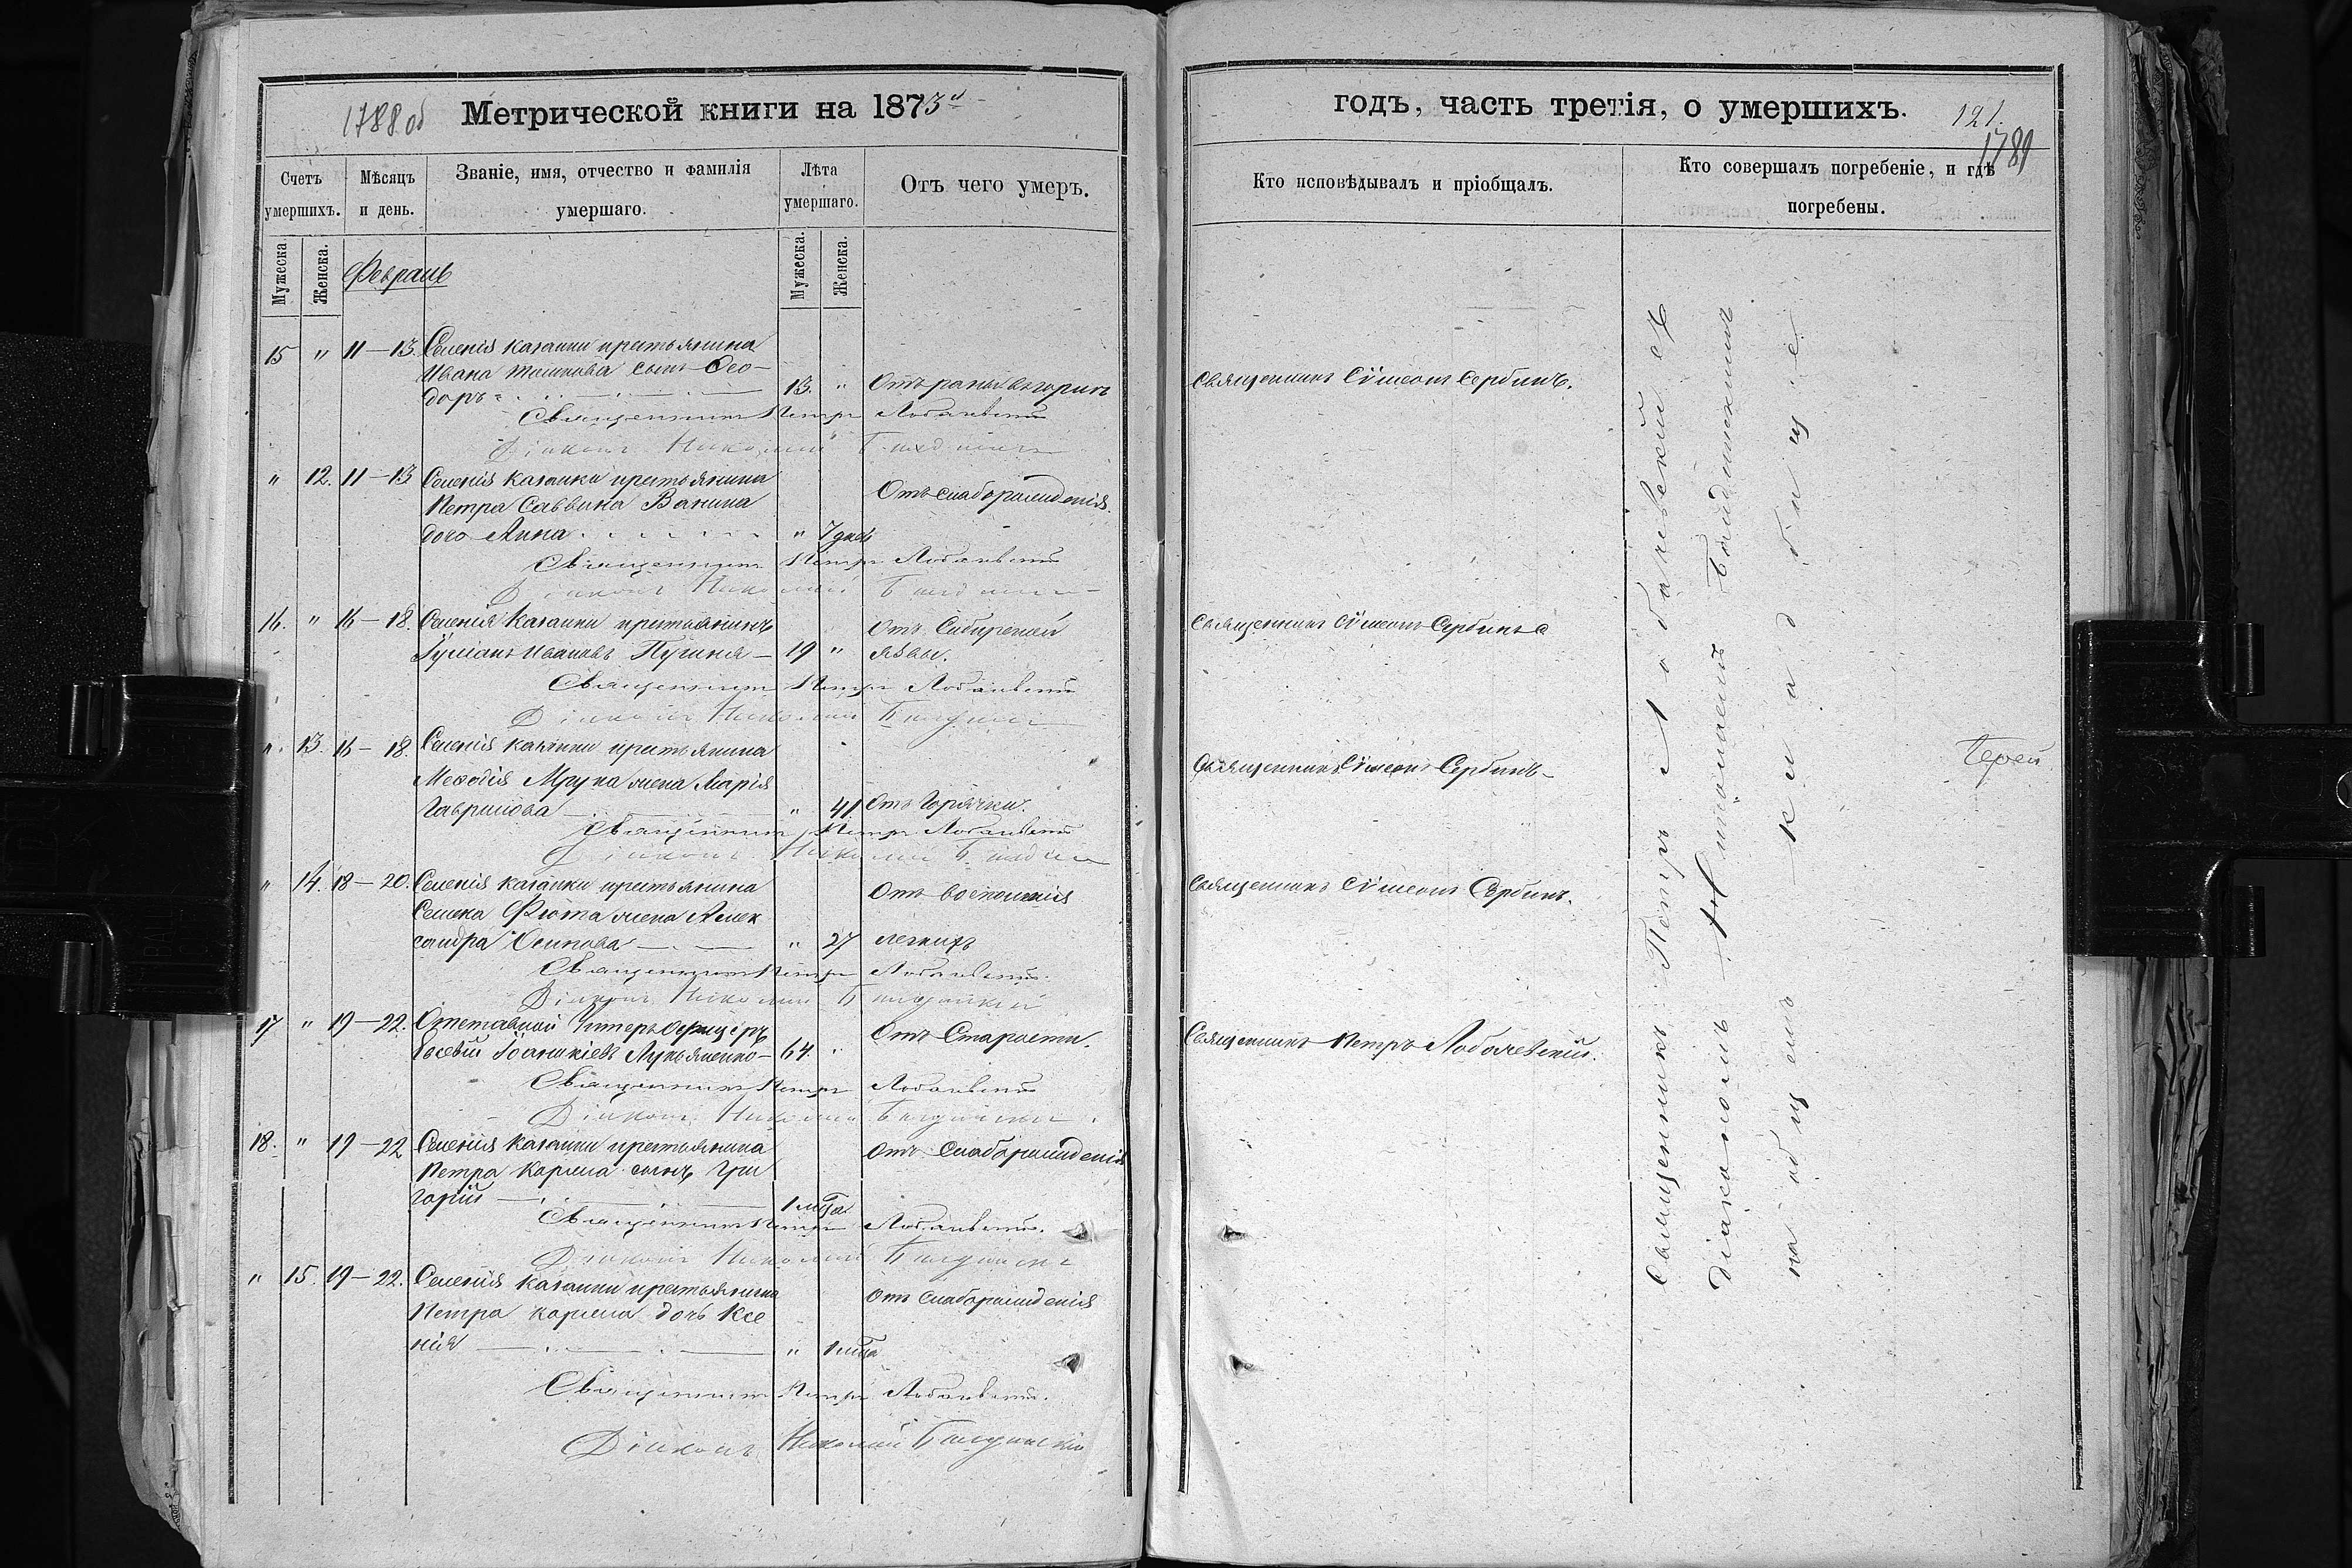 1788 об
Метрической книги на 1873й
Счетъ умершихъ.
Мѣсяцъ и день.
Званіе, имя, отчество и фамилія умершаго.
Лѣта умершаго.
Отъ чего умеръ.
Мужеска.
Женска.
Мужеска.
Женска.
Февраль
15 " 11–13. Селенія Казанки крестьянина
Ивана Ташкова сынъ Ѳео-
доръ 13. " Отъ раны въ горлѣ
Священникъ Петръ Лобачевскій
Діаконъ Николай
" 12. 11–13 Селенія Казанки крестьянина
Отъ слаборожденія.
Петра Саввина Ванина
дочь Анна " 7 дней
Священникъ Петръ Лобачевскій
Діаконъ Николай
16. " 16–18. Селенія Казанки крестьянинъ
Отъ Сибирской
Іуліанъ Ивановъ Пугиня 19 " язвы.
Священникъ Петръ Лобачевскій
Діаконъ Николай
". 13. 16–18 Селенія Казанки крестьянина
Меѳодія Мрука жена Марія
Гаврилова " 41 Отъ Горячки.
Священникъ Петръ Лобачевскій
Діаконъ Николай
" 14. 18–20. Селенія Казанки крестьянина
Отъ воспаленія
Семена Фіота жена Алек
сандра Осипова " 27 легкихъ
Священникъ Петръ Лобачевскій.
Діаконъ Николай
17 " 19–22. Отставной Унтеръ офицеръ
Отъ Старости.
Евсевій Іоанникіевъ Лукьяненко 64. "
Священникъ Петръ Лобачевскій
Діаконъ Николай
18. " 19–22 Селенія Казанки крестьянина
Отъ Слаборожденія
Петра Кориса сынъ Гри
горій 1 мца
Священникъ Петръ Лобачевскій.
Діаконъ Николай
" 15. 19–22. Селенія Казанки крестьянина
Отъ слаборожденія
Петра Кориса дочь Ксе
нія " 1 мца
Священникъ Петръ Лобачевскій.
Діаконъ Николай
годъ, часть третія, о умершихъ.
121.
1789
Кто исповѣдывалъ и пріобщалъ.
Кто совершалъ погребеніе, и гдѣ погребены.
Священникъ Сѵмеонъ Сербинъ.
Священникъ Сѵмеонъ Сербинъ
Священникъ Сѵмеонъ Сербинъ
Священникъ Сѵмеонъ Сербинъ.
Священникъ Петръ Лобачевскій.
Священникъ Петръ Лобачевскій съ
Діакономъ Николаемъ
на общемъ кладбищѣ